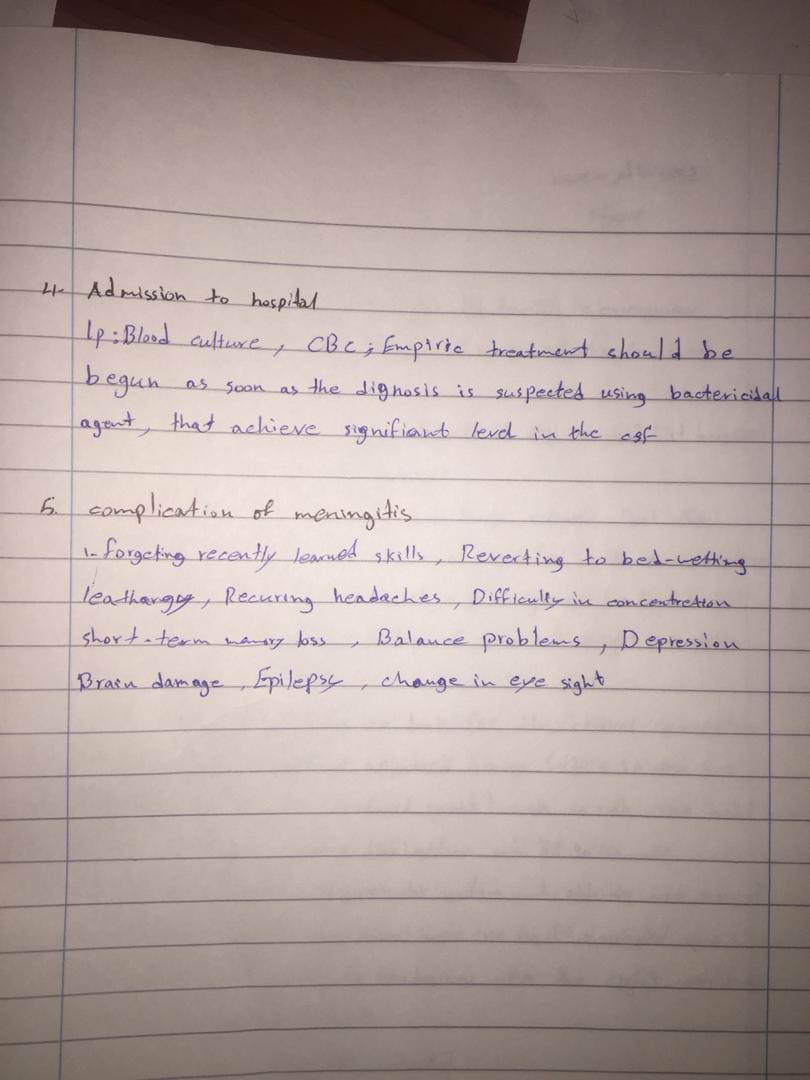 4- Admission to hospital
Lp: Blood culture, CBC; Empiric treatment should be
begun as soon as the dignosis is suspected using bactericidal
agent, that achieve signifiant level in the csf
5. complication of meningitis
1- forgeting recently learned skills, Reverting to bed-wetting
leathargy, Recuring headaches, Difficulty in concentretion
short-term memory loss, Balance problems, Depression
Brain damage, Epilepsy, change in eye sight